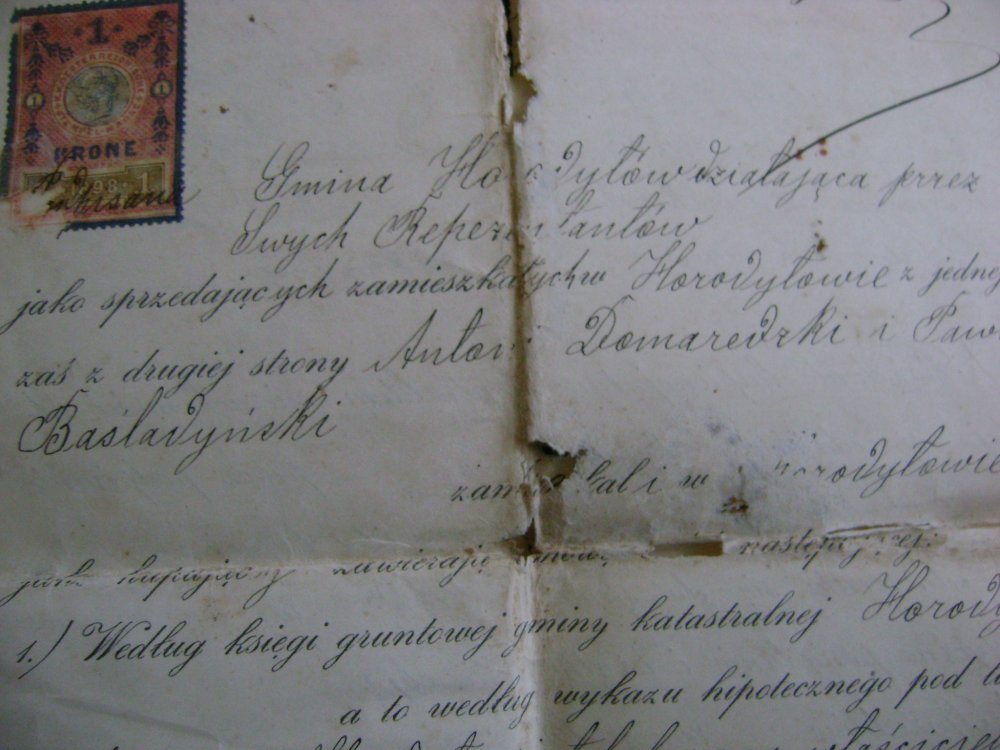 1
KRONE
1898 1
Gmina Horodyłów działająca przez
Swych Reprezentantów
jako sprzedających zamieszkałych w Horodyłowie z jednej
zaś z drugiej strony Antoni Domaredzki i Paw
Baśladyński
zamieszkali w Horodyłowie
jako kupujący zawierają umowę następującej:
1.) Według księgi gruntowej gminy katastralnej Horody
a to według wykazu hipotecznego pod l